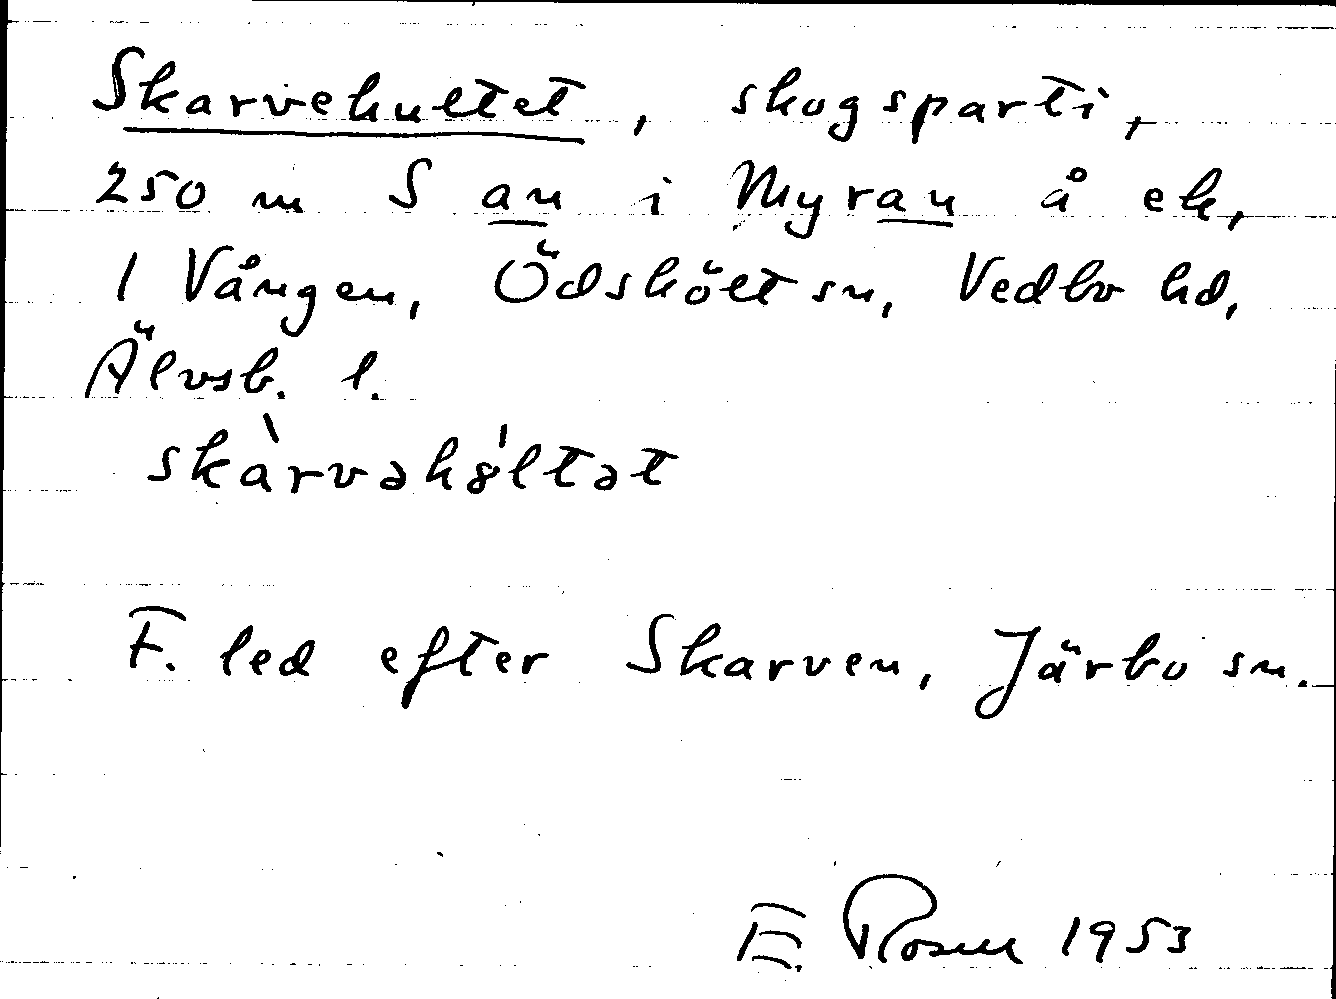 Skarvehultet, skogsparti,
250 m S an i Myran å ek,
1 Vången, Ödskölt sn, Vedbo hd,
Älvsb. l.
skàrvəh 8́ltət
F. led efter Skarven, Järbo sn.
E. Rosell 1953